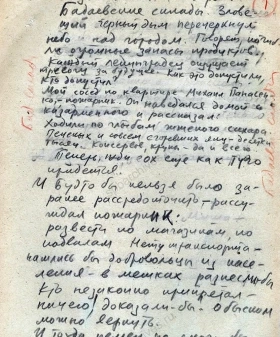 Бадаевские склады. Злове-
щий черный дым перечеркнул
небо над городом. Говорят погиб-
ли огромные запасы продуктов,
каждый ленинградец ощущает
тревогу за будущее. Как это допустили,
Кто допустил?
Мой сосед по квартире Михаил Панасен-
ко-пожарник. Он наведался домой с
казарменного и рассказал:
Ходили по глыбам жженого сахара
Печеных и совсем сгоревших яиц-десятки
тысяч. Консервы, крупа-да и все
Теперь, люди ох еще как туго
придется.
И будто бы нельзя было за-
ранее рассредоточить-рассу-
ждал пожарник.
развезти по магазинам, по
подвалам Нету транспорта-
нашлись бы добровольцы из насе-
ления-в мешках разнесли-бы
Кто незаконно припрятал-
ничего, доказали-бы. Обыском
можно вернуть.